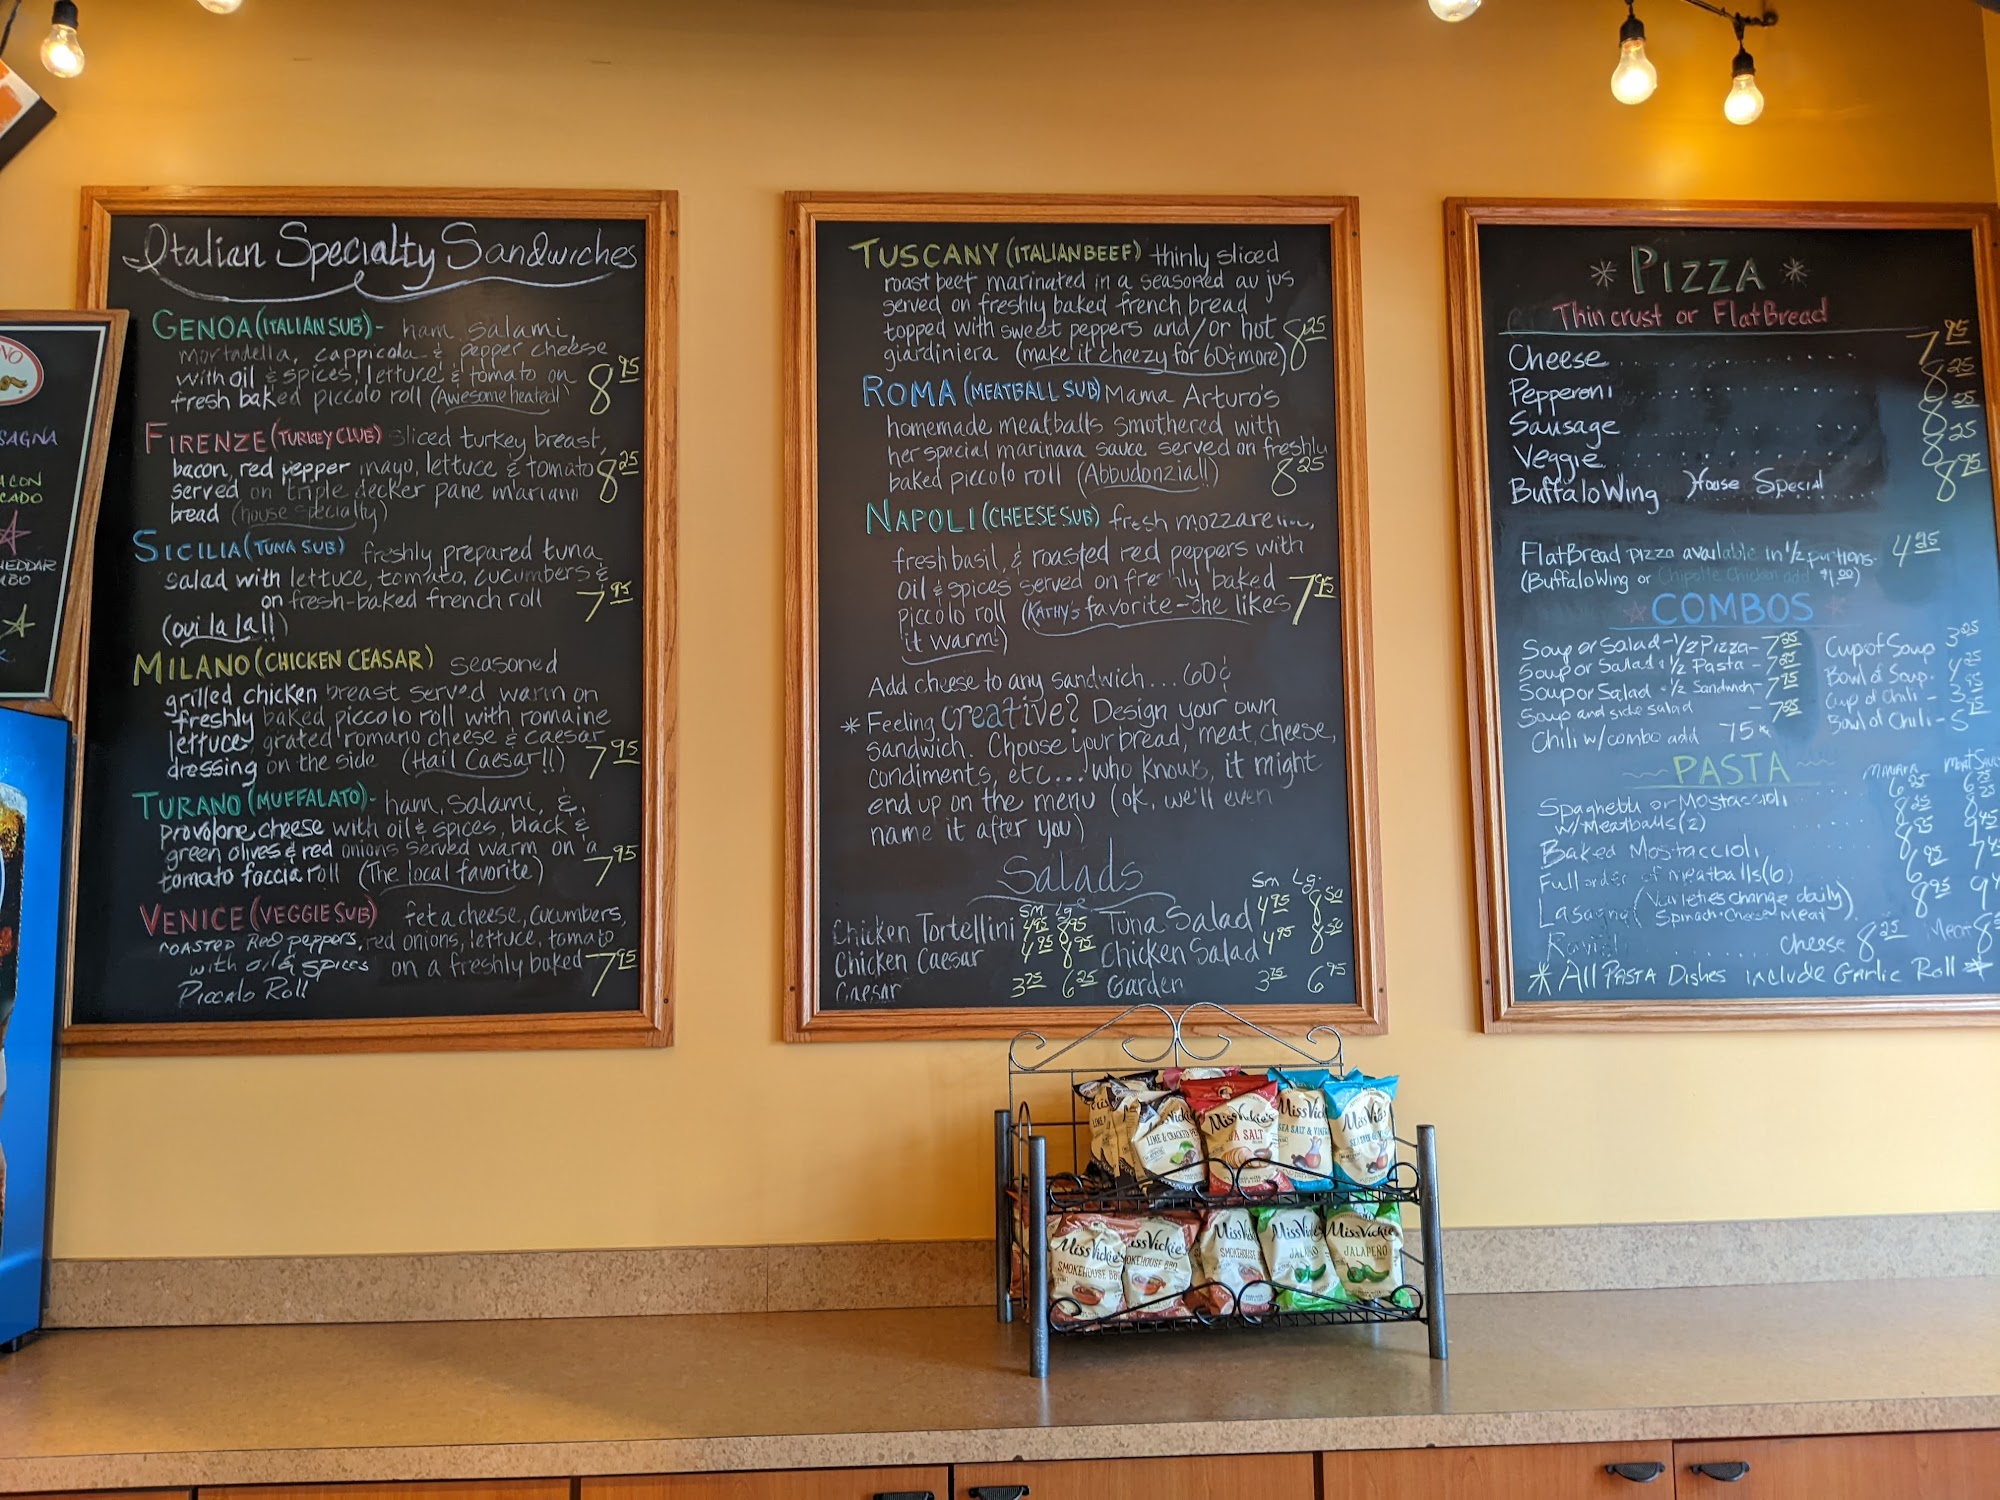 Italian Specialty Sandwiches
GENOA (ITALIAN SUB) - ham, salami,
mortadella, cappicola & pepper cheese
with oil & spices, lettuce & tomato on
fresh baked piccolo roll (Awesome heated) 8 95
FIRENZE (TURKEY CLUB) sliced turkey breast,
bacon, red pepper mayo, lettuce & tomato 8 25
served on triple decker pane mariano
bread (house specialty)
SICILIA (TUNA SUB) freshly prepared tuna
salad with lettuce, tomato, cucumbers &
on fresh-baked french roll 7 95
(oui la la!!)
MILANO (CHICKEN CEASAR) seasoned
grilled chicken breast served warm on
freshly baked piccolo roll with romaine
lettuce, grated romano cheese & caesar
dressing on the side (Hail Caesar!!) 7 95
TURANO (MUFFALATO) - ham, salami, &,
provolone cheese with oil & spices, black &
green olives & red onions served warm on a
tomato foccia roll (The local favorite) 7 95
VENICE (VEGGIE SUB) feta cheese, cucumbers,
roasted Red peppers, red onions, lettuce, tomato
with oil & spices on a freshly baked 7 95
Piccalo Roll
TUSCANY (ITALIAN BEEF) thinly sliced
roast beef marinated in a seasoned au jus
served on freshly baked french bread
topped with sweet peppers and/or hot 8 25
giardiniera (make it cheezy for 60¢ more)
ROMA (MEATBALL SUB) Mama Arturo's
homemade meatballs smothered with
her special marinara sauce served on freshly
baked piccolo roll (Abbudonzia!!) 8 25
NAPOLI (CHEESE SUB) fresh mozzarella,
fresh basil, & roasted red peppers with
oil & spices served on freshly baked
piccolo roll (KATHY's favorite - she likes 7 95
it warm!)
Add cheese to any sandwich... 60¢
* Feeling creative? Design your own
sandwich. Choose your bread, meat, cheese,
condiments, etc... who knows, it might
end up on the menu (ok, we'll even
name it after you)
Salads
Sm Lg Sm Lg
Chicken Tortellini 4 95 8 95 Tuna Salad 4 95 8 50
Chicken Caesar 4 95 8 95 Chicken Salad 4 95 8 50
Caesar 3 75 6 25 Garden 3 75 6 95
* PIZZA *
Thin crust or FlatBread
Cheese 7 95
Pepperoni 8 25
Sausage 8 25
Veggie 8 25
Buffalo Wing House Special 8 95
FlatBread pizza available in 1/2 portions 4 95
(Buffalo Wing or Chipotle Chicken add $1.00)
COMBOS
Soup or Salad - 1/2 Pizza - 7 25 Cup of Soup 3 25
Soup or Salad & 1/2 Pasta - 7 25 Bowl of Soup 4 25
Soup or Salad & 1/2 Sandwich - 7 75 Cup of Chili - 3 75
Soup and side salad - 7 25 Bowl of Chili - 5
Chili w/combo add 75¢
PASTA
Marinara Meat Sauce
Spaghetti or Mostaccioli 6 25
w/Meatballs (2) 8 25 8 25
Baked Mostaccioli 8 95 9 45
Full order of meatballs (6) 6 95
Lasagna (Varieties change daily) 8 95
Spinach - Cheese - Meat
Ravioli cheese 8 25 Meat 8
* All PASTA Dishes include Garlic Roll *
SAGNA
Miss Vickie's
LIME & CRACKED PE
Miss Vickie's
SEA SALT
Miss Vick
SEA SALT & VINE
Miss Vick
Miss Vickie's
SMOKEHOUSE BBQ
Miss Vickie's
SMOKEHOUSE BBQ
Miss Vickie's
SMOKEHOUSE
Miss Vick
JALA
Miss Vickie's
JALAPEÑO